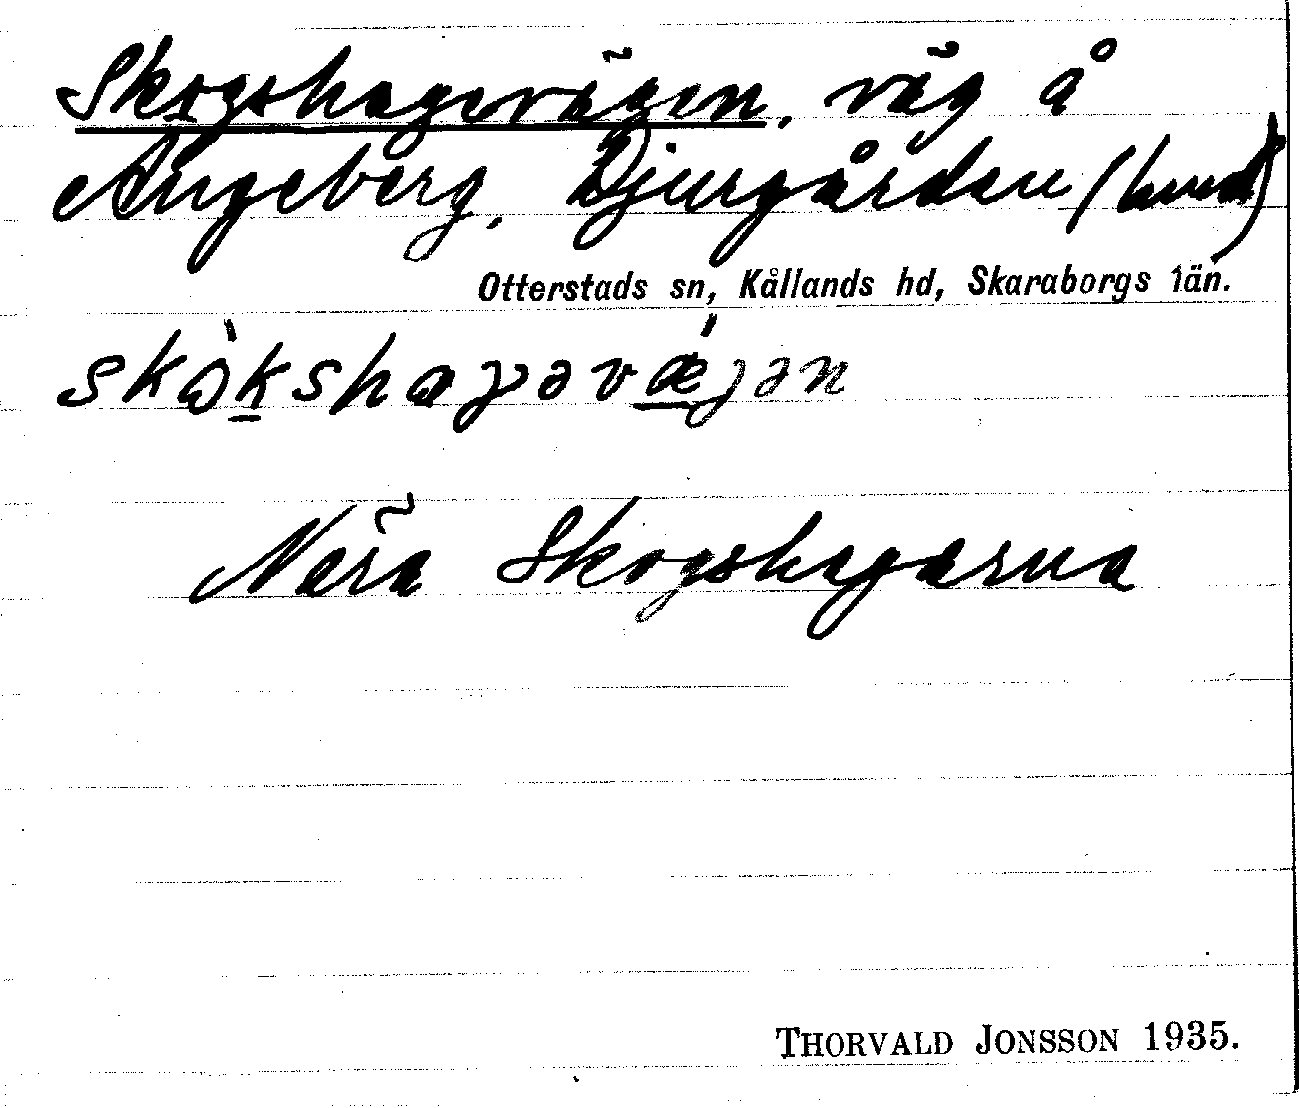 Skogshagevägen, väg å
Ängeberg, Djurgården (lund)
Otterstads sn, Kållands hd, Skaraborgs län.
skɷ̀kshaγəvǽjən
Nära Skogshagarna
THORVALD JONSSON 1935.